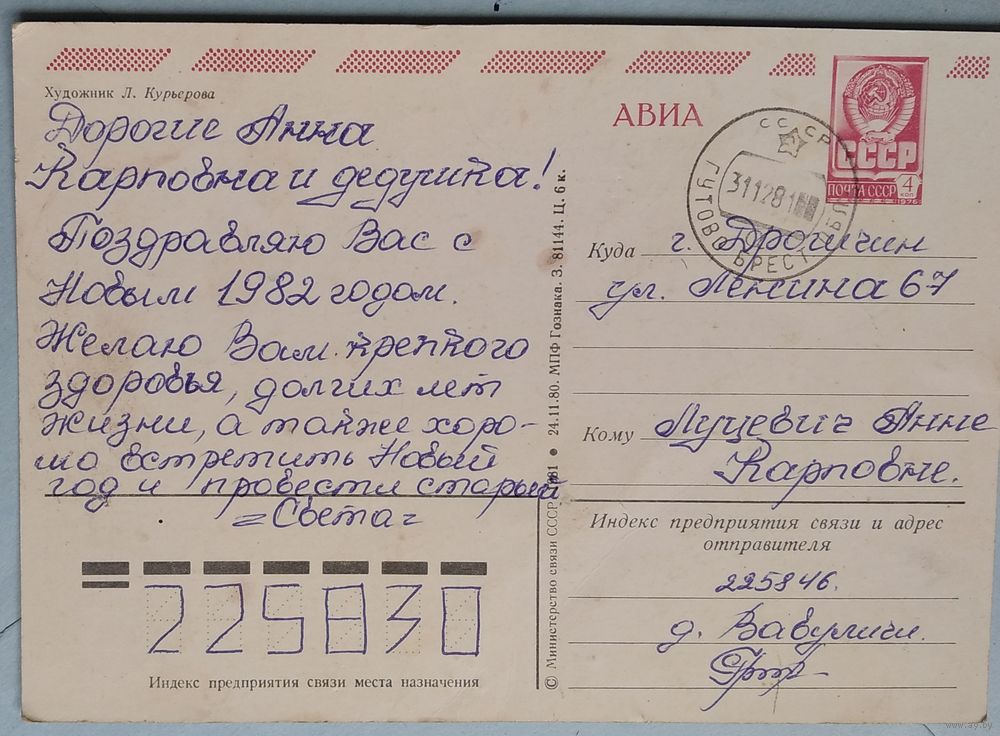 Художник Л. Курьерова
Дорогие Анна
Карповна и дедушка!
Поздравляю Вас с
Новым 1982 годом.
Желаю Вам крепкого
здоровья, долгих лет
жизни, а также хоро-
шо встретить Новый
год и провести старый
=Света=
225830
Индекс предприятия связи места назначения
© Министерство связи СССР. 1981 • 24.11.80. МПФ Гознака. З. 81144. Ц. 6 к.
АВИА
СССР
ПОЧТА СССР 4 КОП
1976
СССР
31 12 81
ГУТОВО БРЕСТ ОБЛ
Куда г. Дрогичин
ул. Ленина 67
Кому Луцевич Анне
Карповне.
Индекс предприятия связи и адрес
отправителя
225846.
д. Вавуличи.
www.ay.by